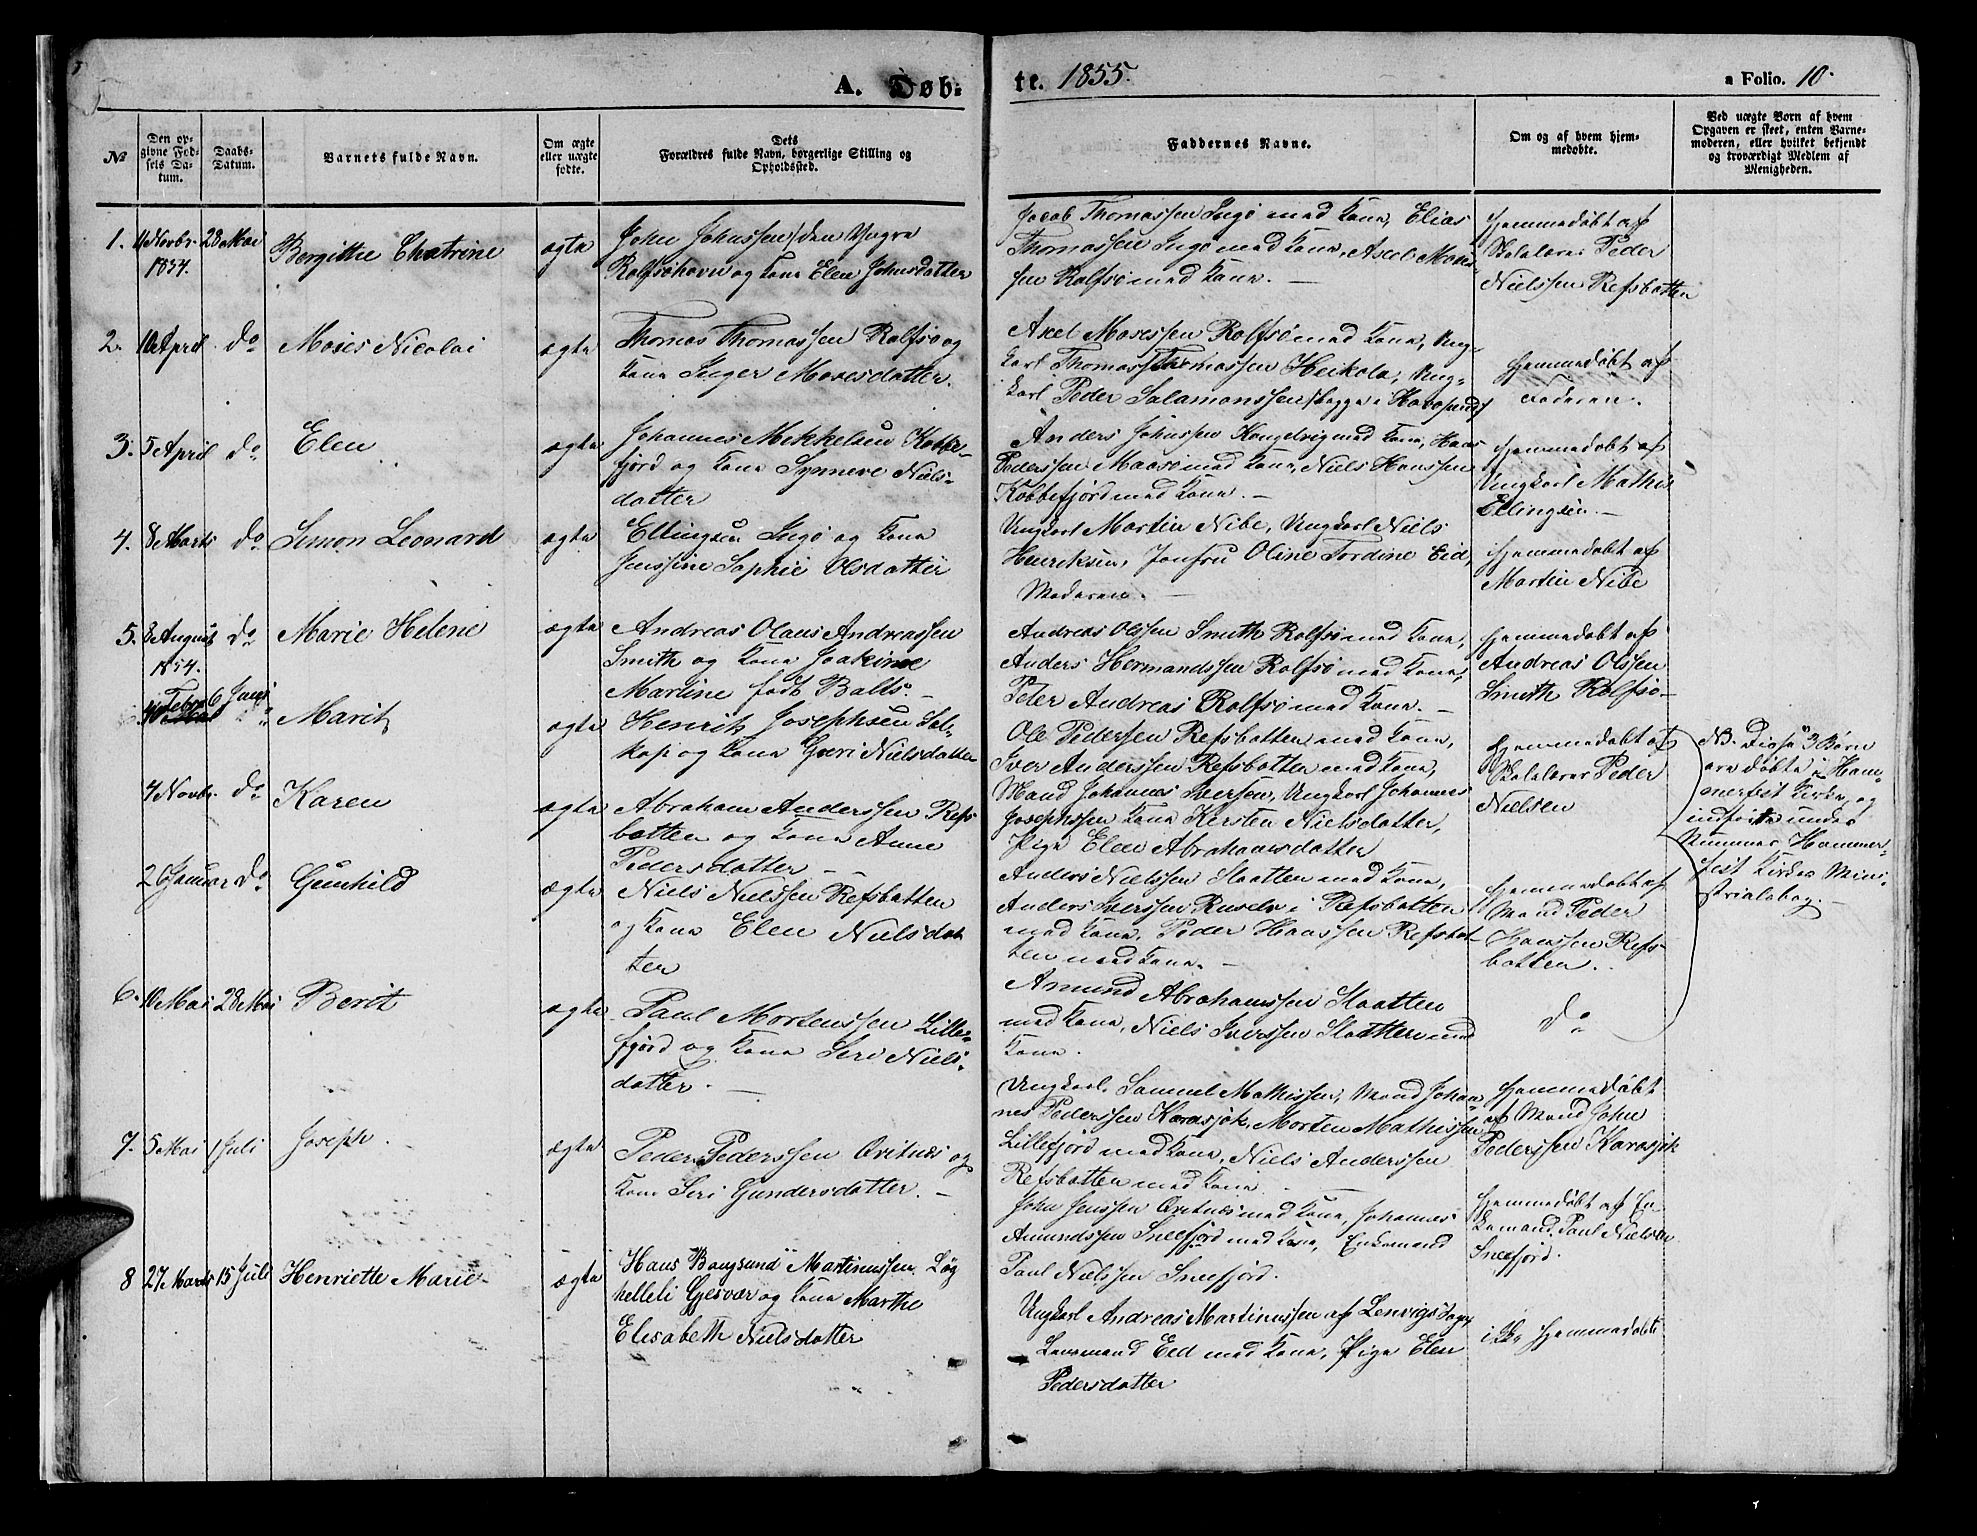 A. Døb=
te. 1855.
a Folio. 10.
№
Den op-
givne Fød-
sels Da-
tum.
Daabs-
Datum.
Barnets fulde Navn.
Om ægte
eller uægte
fødte.
Dets
Forældres fulde Navn, borgerlige Stilling og
Opholdssted.
Faddernes Navne.
Om og af hvem hjem-
medøbte.
Ved uægte Børn af hvem
Opgaven er skeet, enten Barne-
moderen, eller hvilket bekjendt
og troværdigt Medlem af
Menigheden.
1. 11 Novbr 28 Mai
1854.
Bergitthe Chatrine
ægte
John Johnssen den Yngre
Rolfsøhavn og Kone Elen Johnsdatter
Jacob Thomassen Ingø med Kone, Elias
Thomassen Ingø med Kone, Axel Moses-
sen Rolfsø med Kone. —
Hjemmedøbt af
Skolelærer Peder
Nielssen Refsbotten
2. 10 April do
Moses Nicolai
ægte
Thomas Thomassen Rolfsø og
Kone Inger Mosesdatter.
Axel Mosessen Rolfsø med Kone, Ung-
karl Thomas Thomassen Heikola, Ung-
karl Peder Salamonssen begge i Havøsund
Hjemmedøbt af
Faderen.
3. 5 April do
Elen
ægte
Johannes Mikkelsen Kobbe-
fjord og Kone Synneve Niels-
datter
Anders Johnssen Kongelvig med Kone, Hans
Pederssen Maasø med Kone, Niels Hanssen
Kobbefjord med Kone. —
Hjemmedøbt af
Ungkarl Mathis
Ellingsen. —
4. 8 Marts do
Simon Leonard
ægte
Ellingsen Ingø og Kone
Jenssine Sophie Olsdatter
Ungkarl Martin Nibe, Ungkarl Niels
Henriksen, Jomfru Oline Tordine Eid,
Moderen. —
Hjemmedøbt af
Martin Nibe
5. 8 August do
1854.
Marie Helene
ægte
Andreas Olaus Andreassen
Smith og Kone Joakime
Martine født Balts. —
Andreas Olssen Smith Rolfsø med Kone,
Anders Hermandssen Rolfsø med Kone,
Peter Andreas Rolfsø med Kone. —
Hjemmedøbt af
Andreas Olssen
Smith Rolfsø —
Febr 6 Juni
Marit
ægte
Henrik Josephsen Sel-
kop og Kone Gæri Nielsdatter
Ole Pedersen Refsbotten med Kone,
Iver Anderssen Refsbotten med Kone,
Mand Johannes Iversen, Ungkarl Johannes
Josephssen Kone Kersten Nielsdatter,
Pige Elen Abrahamsdatter
Hjemmedøbt af
Skolelærer Peder
Nielsen
NB. Disse 3 Børn
ere døbte i Ham-
merfest Kirke, og
indførte under
Nummer Hammer-
fest Kirkes Mini-
strialbog. —
4 Novbr. do
Karen
ægte
Abraham Anderssen Refs-
botten og Kone Anne
Pedersdatter —
26 Januar do
Gunhild
ægte
Niels Nielssen Refsbotten
og Kone Elen Nielsdat
ter
Anders Nielssen Slaatten med Kone,
Anders Iverssen Ruselv i Refsbotten
med Kone, Peder Hanssen Refsbot-
ten med Kone. —
Hjemmedøbt af
Mand Peder
Hanssen Refs-
botten.
6. 10 Mai 28 Mai
Berit
ægte
Paul Mortenssen Lille-
fjord og Kone Seri Niels-
datter. —
Amund Abrahamssen Slaatten
med Kone, Niels Iverssen Slaatten med
Kone.
do
Ungkarl Samuel Mathissen, Mand Johan-
nes Pederssen Karasjok, Morten Mathissen
Lillefjord med Kone, Niels Anderssen
Refsbotten med Kone —
Hjemmedøbt
af Mand John
Pederssen Karasjok
7. 5 Mai 1 Juli
Joseph.
ægte
Peder Pederssen Qvitnes og
Kone Seri Gundersdatter. —
John Jenssen Qvitnes med Kone, Johannes
Amundssen Sneefjord med Kone, Enkemand
Paul Nielssen Sneefjord.
Hjemmedøbt af En-
kemand Paul Nielsen
Sneefjord.
8 27 Marts 15 Juli
Henriette Marie
ægte
Hans Bangsund Martinussen Løg
helleli Gjesvær og Kone Marthe
Elisabeth Nielsdatter
Ungkarl Andreas Martinussen af Lenvigs Sogn
Lensmand Eed med Kone, Pige Elen
Pedersdatter
ikke Hjemmedøbt